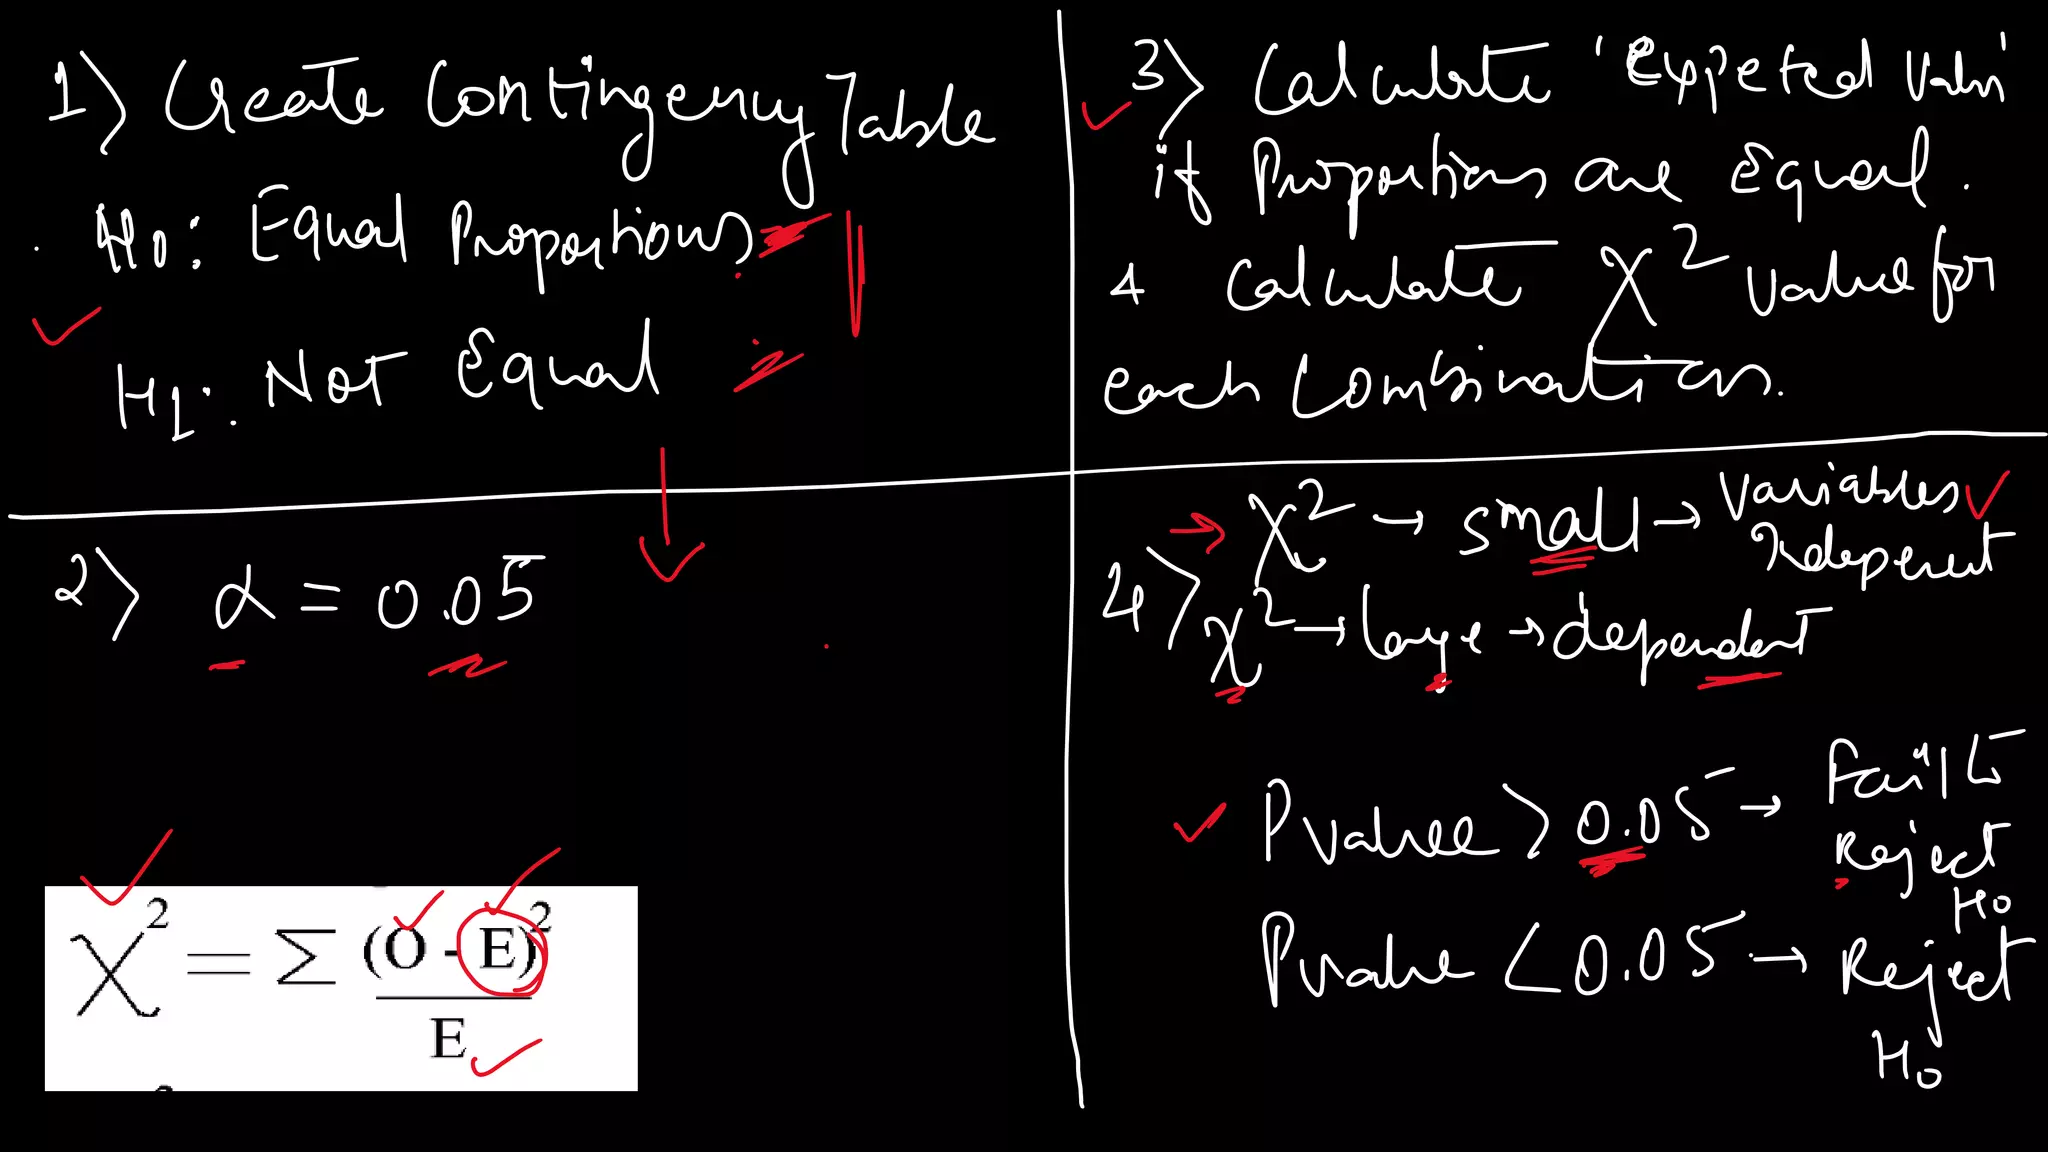 1> Create Contingency Table
H0: Equal Proportions
H1: Not Equal
2> α = 0.05
χ² = Σ (O - E)²
E
3> Calculate 'Expeted Valu'
if Proportions are Equal.
& Calculate χ² value for
each Combination.
4> χ² → small → Variables
Independent
χ² → large → dependent
Pvalue > 0.05 → Fail to
Reject
H0
Pvalue < 0.05 → Reject
H0